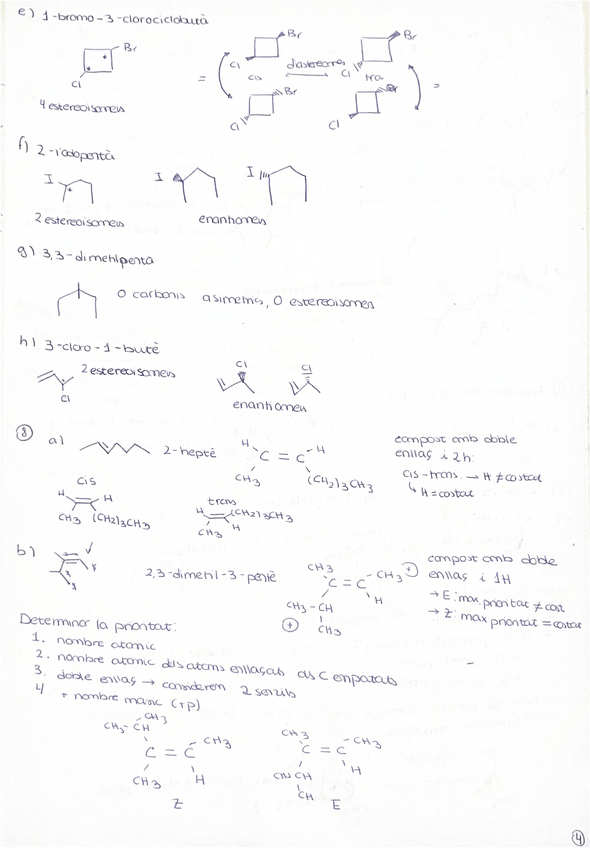 e) 1-bromo-3-clorociclobutà
Br
Cl
4 estereoisomers
=
Cl
Br
cis
Cl
Br
diastereomers
Cl
Br
trans
Cl
=
f) 2-iodopentà
I
I
I
2 estereoisomers
enantiomers
g) 3,3-dimetilpentà
0 carbonis asimetrics, 0 estereoisomers
h) 3-cloro-1-butè
2 estereoisomers
Cl
Cl
Cl
enantiomers
8 a)
2-heptè
H
H
C = C
CH3
(CH2)3CH3
compost amb doble
enllaç i 2h:
cis-trans. → H ≠ costat
↳ H = costat
cis
H
H
CH3 (CH2)3CH3
trans
H
(CH2)3CH3
CH3
H
b)
2,3-dimetil-3-pentè
CH3
CH3 +
C = C
CH3-CH
H
+
CH3
compost amb doble
enllaç i 1H
→ E: max. prioritat ≠ cost
→ Z: max prioritat = costat
Determinar la prioritat:
1. nombre atomic
2. nombre atomic dels atoms enllaçats als C empatats
3. doble enllaç → considerem 2 senzills
4 + nombre massic (TP)
CH3
CH3-CH
CH3
C = C
CH3
H
Z
CH3
CH3
C = C
CH3 CH
H
CH
E
4